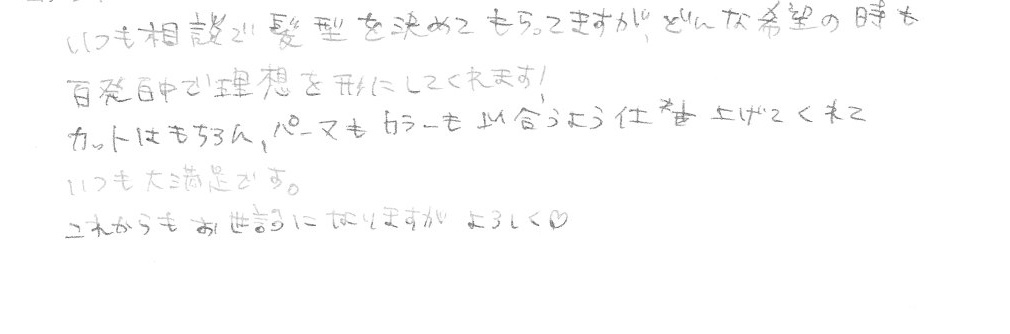 いつも相談で髪型を決めてもらってますが、どんな希望の時も
百発百中で理想を形にしてくれます!
カットはもちろん、パーマもカラーも似合うよう仕上げてくれて
いつも大満足です。
これからもお世話になりますがよろしく♡